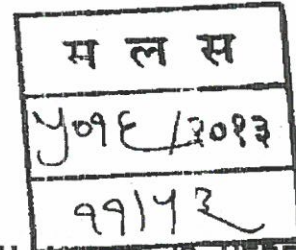 म ल स
५०१६/२०१३
११/५२